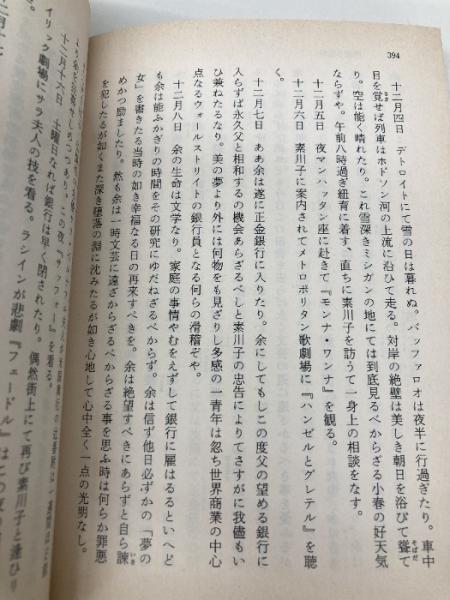 394
十二月四日　デトロイトにて雪の日は暮れぬ。バッファロオは夜半に行過ぎたり。車中
目を覚せば列車はホドソン河の上流に沿ひて走る。対岸の絶壁は美しき朝日を浴びて聳て
り。空は能く晴れたり。これ雪深きミシガンの地にては到底見るべからざる小春の好天気
ならずや。午前八時過ぎ紐育に着す、直ちに素川子を訪うて一身上の相談をなす。
十二月五日　夜マンハッタン座に赴きて『モンナ・ワンナ』を観る。
十二月六日　素川子に案内されてメトロポリタン歌劇場に『ハンゼルとグレテル』を聴
く。
十二月七日　ああ余は遂に正金銀行に入りたり。余にしてもしこの度父の望める銀行に
入らずば永久父と相和するの機会あらざるべしと素川子の忠告によりてさすがに我儘もい
ひ兼ねたるなり。美の夢より外には何物をも見ざりし多感の一青年は忽ち世界商業の中心
点なるウォールストリイトの銀行員となる何らの滑稽ぞや。
十二月八日　余の生命は文学なり。家庭の事情やむをえずして銀行に雇はるるといへど
も余は能ふかぎりの時間をその研究にゆだねざるべからず。余は信ず他日必ずかの「夢の
女」を書きたる当時の如き幸福なる日の再来すべきを。余は絶望すべきにあらずと自ら諫
めかつ励ましたり。然も余は一時文芸に遠ざからざるべからざる事を思ふ時は何らか罪悪
を犯したるが如くまた深き堕落の淵に沈みたるが如き心地して心中全く一点の光明なし。
この夜『サッフォー』を看る。
十二月十六日　土曜日なれば銀行は早く閉されたり。偶然街上にて再び素川子と逢ひ
イリック劇場にサラ夫人の技を看る。ラシインが悲劇『フェードル』